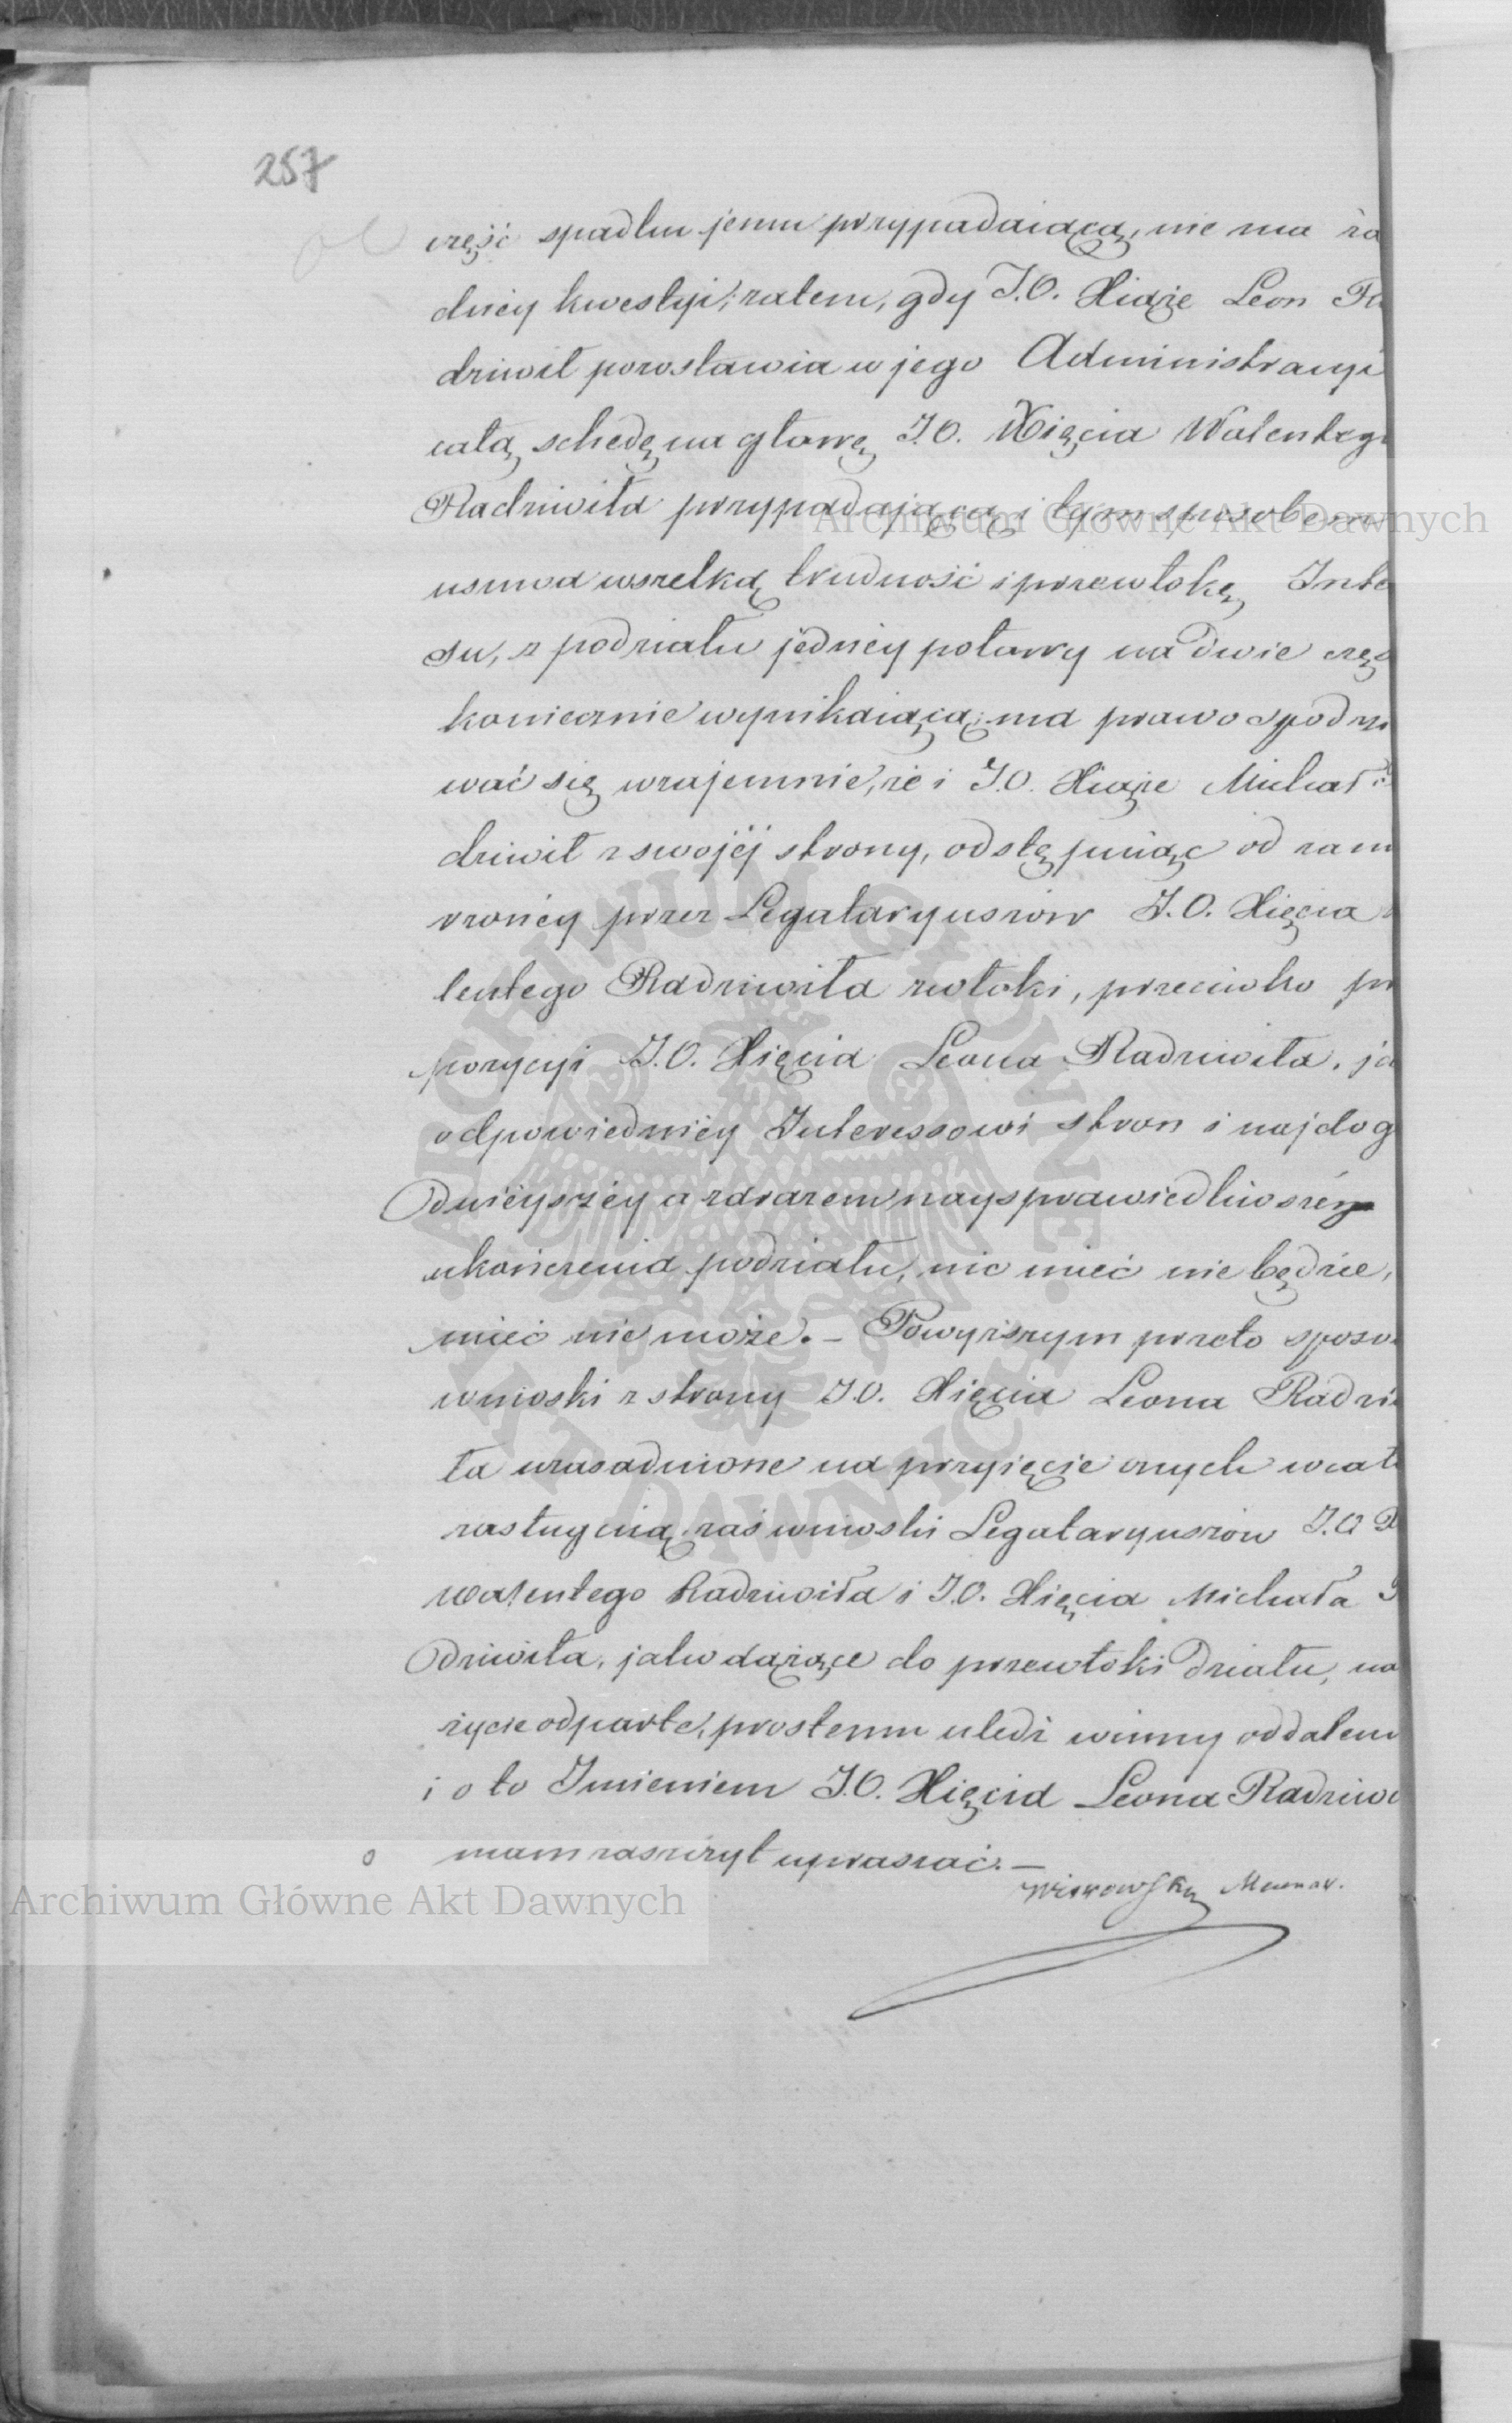 257
część spadku jemu przypadaiącą, nie ma ża
dnéy kwestyi; zatem, gdy J.O. Xiąże Leon Ra
dziwił pozostawia w jego Administracyi
całą schedę na głowę J.O. Xięcia Walentego
Radziwiła przypadającą i tym sposobem
usuwa wszelką trudność i przewłokę Inte
su, z podziału jednéy połowy na dwie częś
koniecznie wynikaiącą; ma prawo spodzi
wać się wzajemnie, że i J.O. Xiąże Michał
dziwił z swojéj strony, odstępuiąc od zam
rzonéy przez Legataryuszów J.O. Xięcia
lentego Radziwiła zwłoki, przeciwko pr
pozycyi J.O. Xięcia Leona Radziwiła, ja
odpowiedniéy Interessowi stron i najdog
dniéyszéy a zarazem nayspra­wiedliwszéy
ukończenia podziału, nic mieć nie będzie,
mieć nie może. – Powyższym przeto sposo
wnioski z strony J.O. Xięcia Leona Radzi
ła uzasadnione na przyięcie onych w cał
zasługuią, zaś wnioski Legataryuszów J.O. X
Walentego Radziwiła i J.O. Xięcia Michała R
dziwiła, jako dążące do przewłoki działu, na
życie odparte, prostemu uledz winny oddaleniu
i o to Imieniem J.O. Xięcia Leona Radziwi
mam zaszczyt upraszać. –
Archiwum Główne Akt Dawnych
Archiwum Główne Akt Dawnych
ARCHIWUM GŁÓWNE AKT DAWNYCH